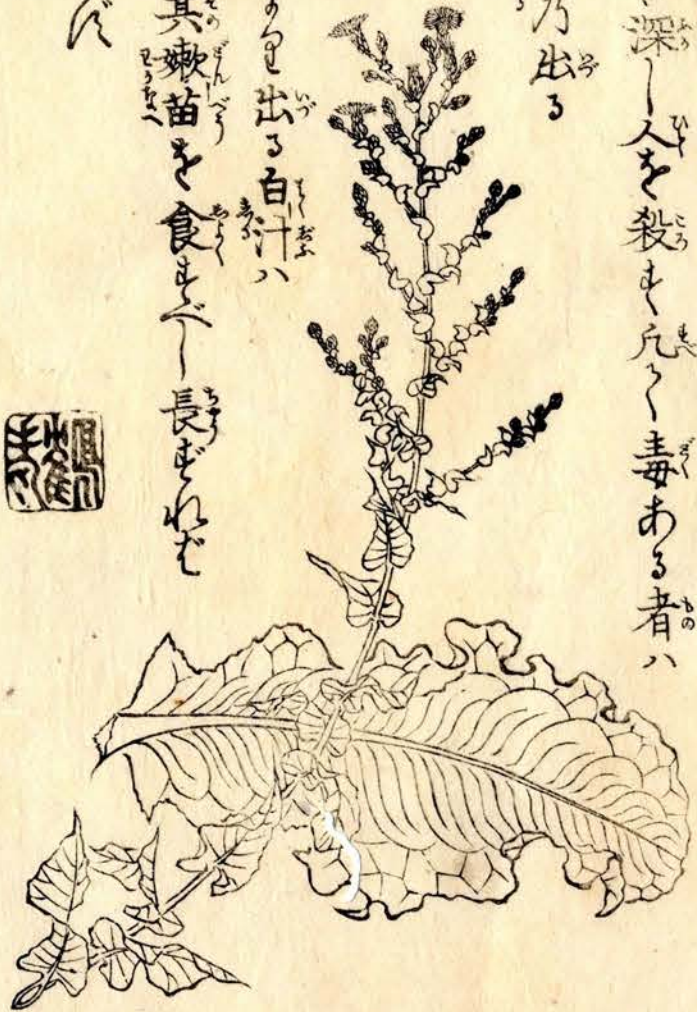 深し人を殺す凡て毒ある者ハ
乃出る
より出る白汁ハ
其嫩苗を食すべし長ずれば